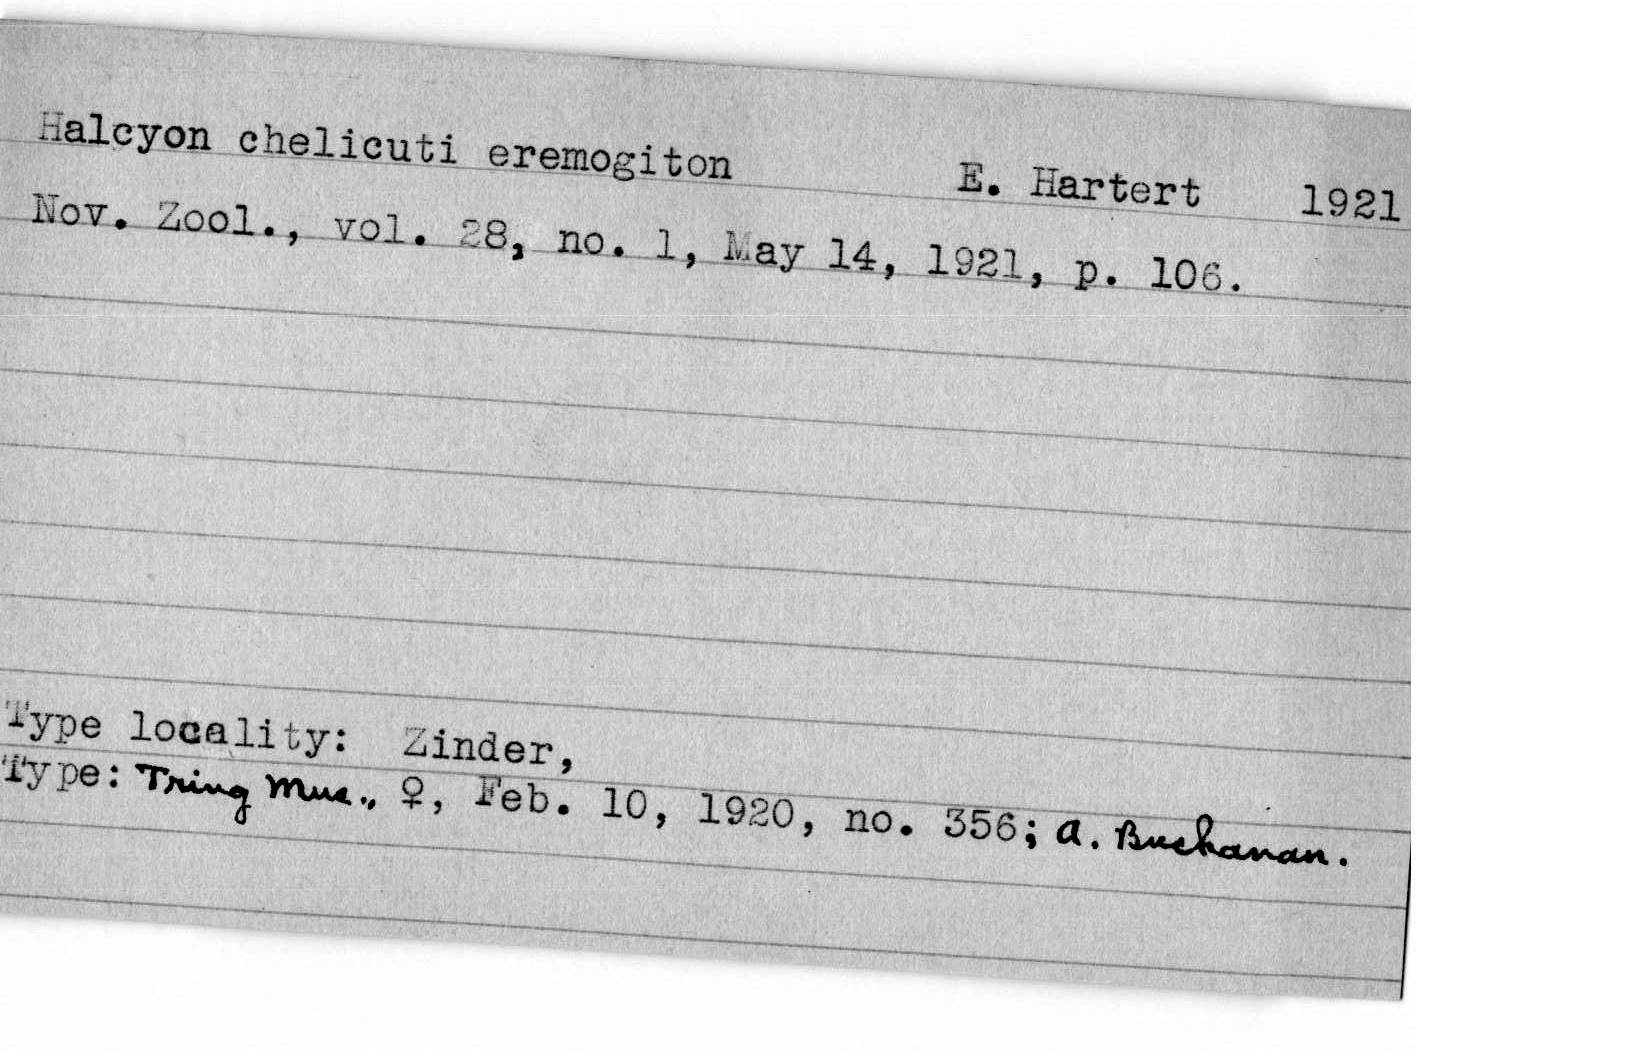 Halcyon chelicuti eremogiton E. Hartert 1921
Nov. Zool., vol. 28, no. 1, May 14, 1921, p. 106.
Type locality: Zinder,
Type: Tring Mus., ♀, Feb. 10, 1920, no. 356; A. Buchanan.